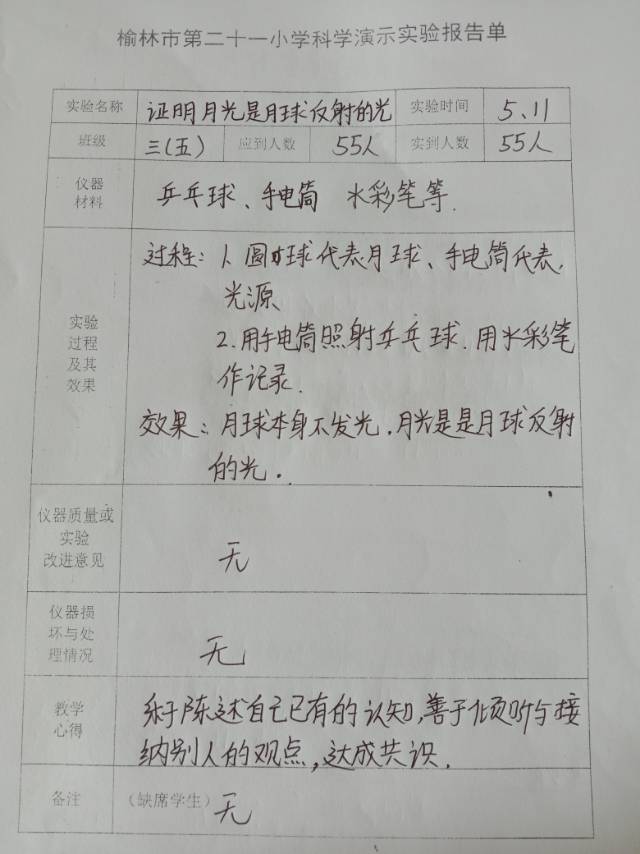 榆林市第二十一小学科学演示实验报告单
实验名称 证明月光是月球反射的光 实验时间 5、11
班级 三(五) 应到人数 55人 实到人数 55人
仪器
材料
乒乓球、手电筒 水彩笔等.
实验
过程
及其
效果
过程: 1、圆球代表月球、手电筒代表
光源
2.用手电筒照射乒乓球.用水彩笔
作记录.
效果: 月球本身不发光.月光是是月球反射
的光.
仪器质量或
实验
改进意见
无
仪器损
坏与处
理情况
无
教学
心得
乐于陈述自己已有的认知,善于倾听与接
纳别人的观点,达成共识.
备注 (缺席学生) 无